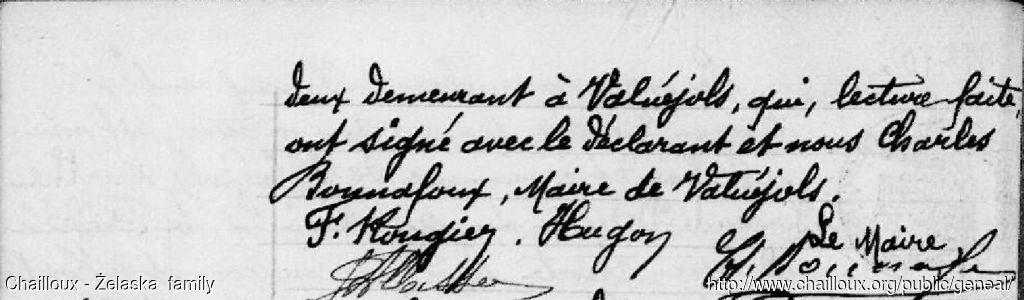 deux demeurant à Valuéjols, qui, lecture faite,
ont signé avec le déclarant et nous Charles
Bonnafoux, Maire de Valuéjols.
F. Rougier. Hugon
Le Maire
Chailloux - Żelaska family
http://www.chailloux.org/public/geneal/